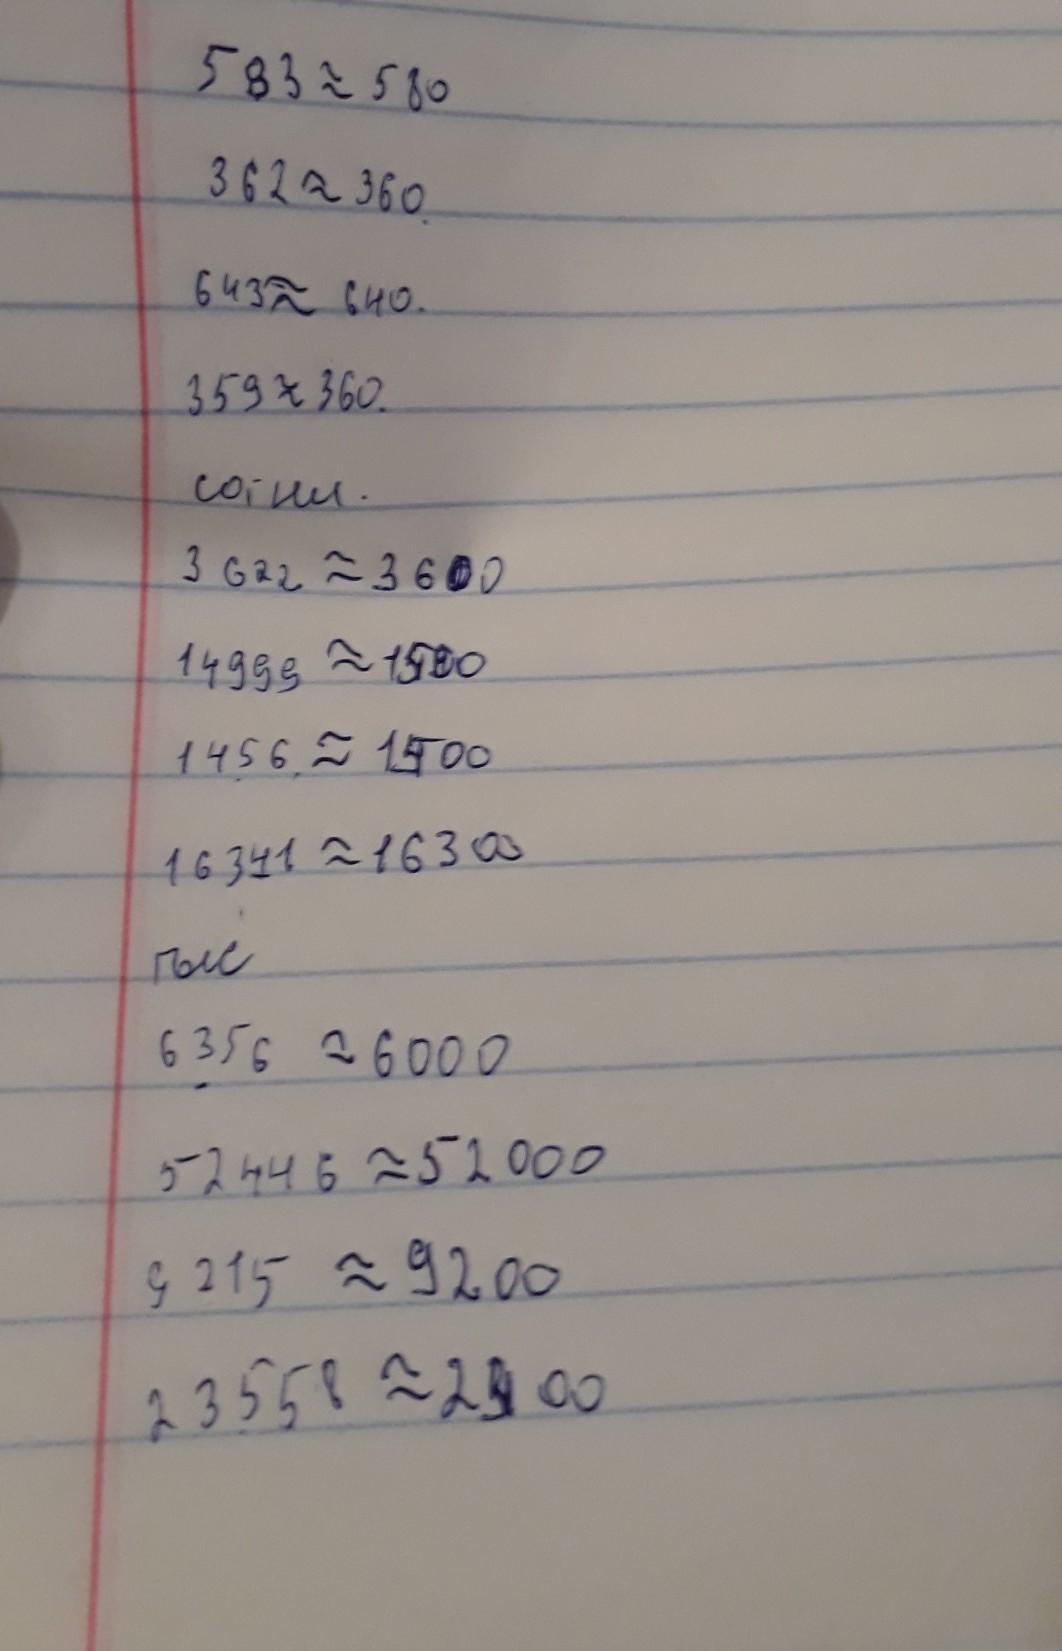 583 ≈ 580
362 ≈ 360.
643 ≈ 640.
359 ≈ 360.
сотни.
3622 ≈ 3600
14999 ≈ 1500
1456. ≈ 1500
16341 ≈ 16300
тыс
6356 ≈ 6000
52446 ≈ 52000
9215 ≈ 9200
23558 ≈